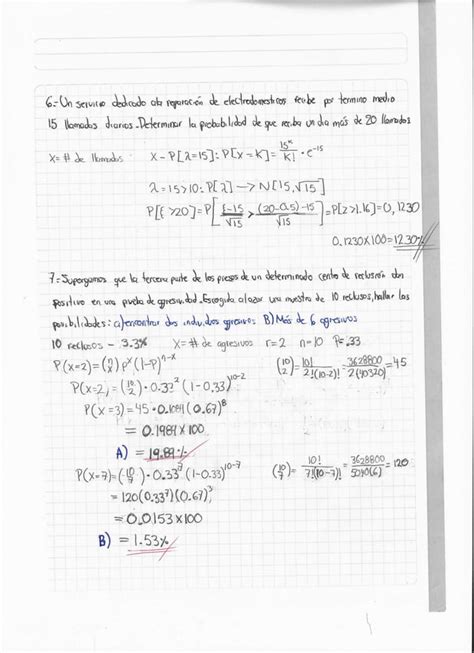 6.- Un servicio dedicado ala reparación de electrodomesticos recibe por termino medio
15 llamadas diarias. Determinar la probabilidad de que reciba un día más de 20 llamadas
X= # de llamadas: X - P[λ=15]: P[X = K] = 15^K / K! · e^-15
λ = 15>10: P[λ] → N[15, √15]
P[ξ >20] = P[ξ-15 / √15 > (20-0.5)-15 / √15] = P[Z>1.16] = 0,1230
0.1230x100 = 12.30%
7.- Supongamos que la tercera parte de los presos de un determinado centro de reclusión dan
positivo en una prueba de agresividad. Escogida al azar una muestra de 10 reclusos, hallar las
posibilidades: a) encontrar dos individuos agresivos B) Más de 6 agresivos
10 reclusos - 3.3% X= # de agresivos r=2 n=10 P=.33
P(x=2) = (n x) p^x (1-P)^n-x (10 2) = 10! / 2!(10-2)! = 3628800 / 2(40320) = 45
P(x=2) = (10 2) · 0.33^2 (1-0.33)^10-2
P(x=3) = 45 · 0.1089 (0.67)^8
= 0.1989 x100
A) = 19.89 %
P(x=7) = (10 7) · 0.33^7 (1-0.33)^10-7 (10 7) = 10! / 7!(10-7)! = 3628800 / 5040(6) = 120
= 120(0.33^7)(0.67)^3
= 0.0153 x100
B) = 1.53%